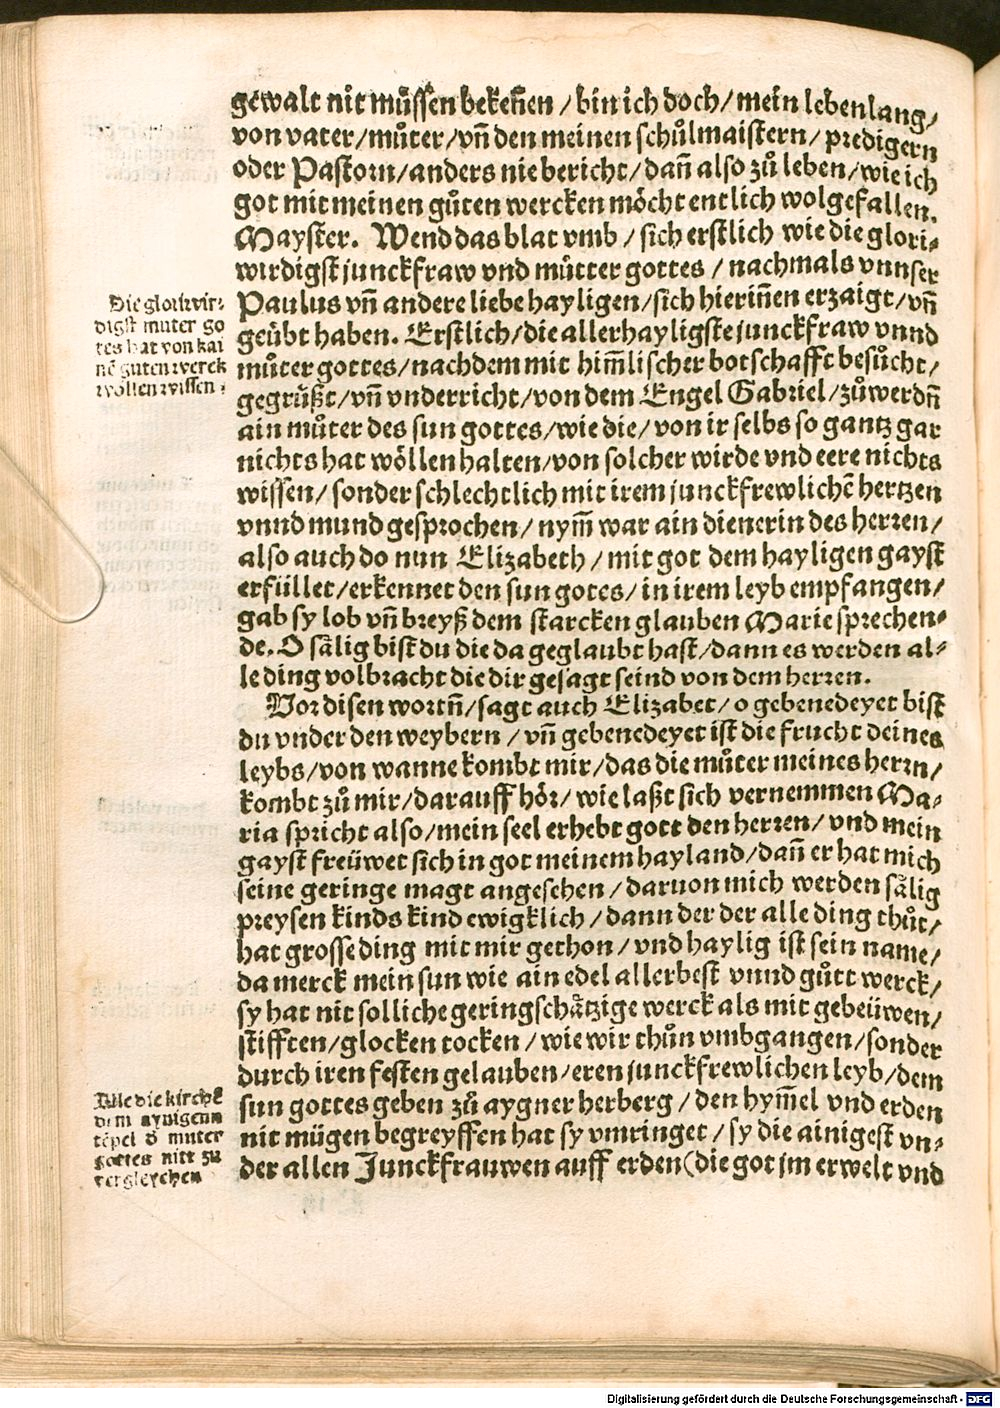 gewalt nit müssen bekeñen / bin ich doch / mein lebenlang /
von vater / můter / vñ den meinen schůlmaistern / predigern
oder Pastorn / anders nie bericht / dañ also zů leben / wie ich
got mit meinen gůten wercken möcht entlich wolgefallen.
Mayster. Wend das blat vmb / sich erstlich wie die glori-
wirdigst junckfraw vnd můtter gottes / nachmals vnnser
Paulus vñ andere liebe hayligen / sich hieriñen erzaigt / vñ
geübt haben. Erstlich / die allerhayligste junckfraw vnnd
můter gottes / nachdem mit him̃lischer botschafft besůcht /
gegrüßt / vñ vnderricht / von dem Engel Gabriel / zůwerdñ
ain můter des sun gottes / wie die / von ir selbs so gantz gar
nichts hat wöllen halten / von solcher wirde vnd eere nichts
wissen / sonder schlechtlich mit irem junckfrewlichẽ hertzen
vnnd mund gesprochen / nym̃ war ain dienerin des herren /
also auch do nun Elizabeth / mit got dem hayligen gayst
erfüllet / erkennet den sun gotes / in irem leyb empfangen /
gab sy lob vñ breyß dem starcken glauben Marie sprechen-
de. O sälig bist du die da geglaubt hast / dann es werden al-
le ding volbracht die dir gesagt seind von dem herren.
Vor disen wortñ / sagt auch Elizabet / o gebenedeyet bist
du vnder den weybern / vñ gebenedeyet ist die frucht deines
leybs / von wanne kombt mir / das die můter meines herrn /
kombt zů mir / darauff hör / wie laßt sich vernemmen Ma-
ria spricht also / mein seel erhebt gott den herren / vnd mein
gayst freüwet sich in got meinem hayland / dañ er hat mich
seine geringe magt angesehen / daruon mich werden sälig
preysen kinds kind ewigklich / dann der der alle ding thůt /
hat grosse ding mit mir gethon / vnd haylig ist sein name /
da merck mein sun wie ain edel allerbest vnnd gůtt werck /
sy hat nit solliche geringschätzige werck als mit gebeüwen /
stifften / glocken tocken / wie wir thůn vmbgangen / sonder
durch iren festen gelauben / eren junckfrewlichen leyb / dem
sun gottes geben zů aygner herberg / den hym̃el vnd erden
nit mügen begreyffen hat sy vmringet / sy die ainigest vn-
der allen Junckfrauwen auff erden (die got jm erwelt vnd
Die gloriwir-
digst muter go
tes hat von kai
nẽ guten werck
wöllen wissen.
Alle die kirchẽ
dem aynigenn
tẽpel d' muter
gottes nitt zu
vergleychen
Digitalisierung gefördert durch die Deutsche Forschungsgemeinschaft - DFG